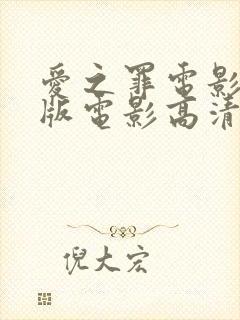 愛之罪電影
版電影高清
倪大宏